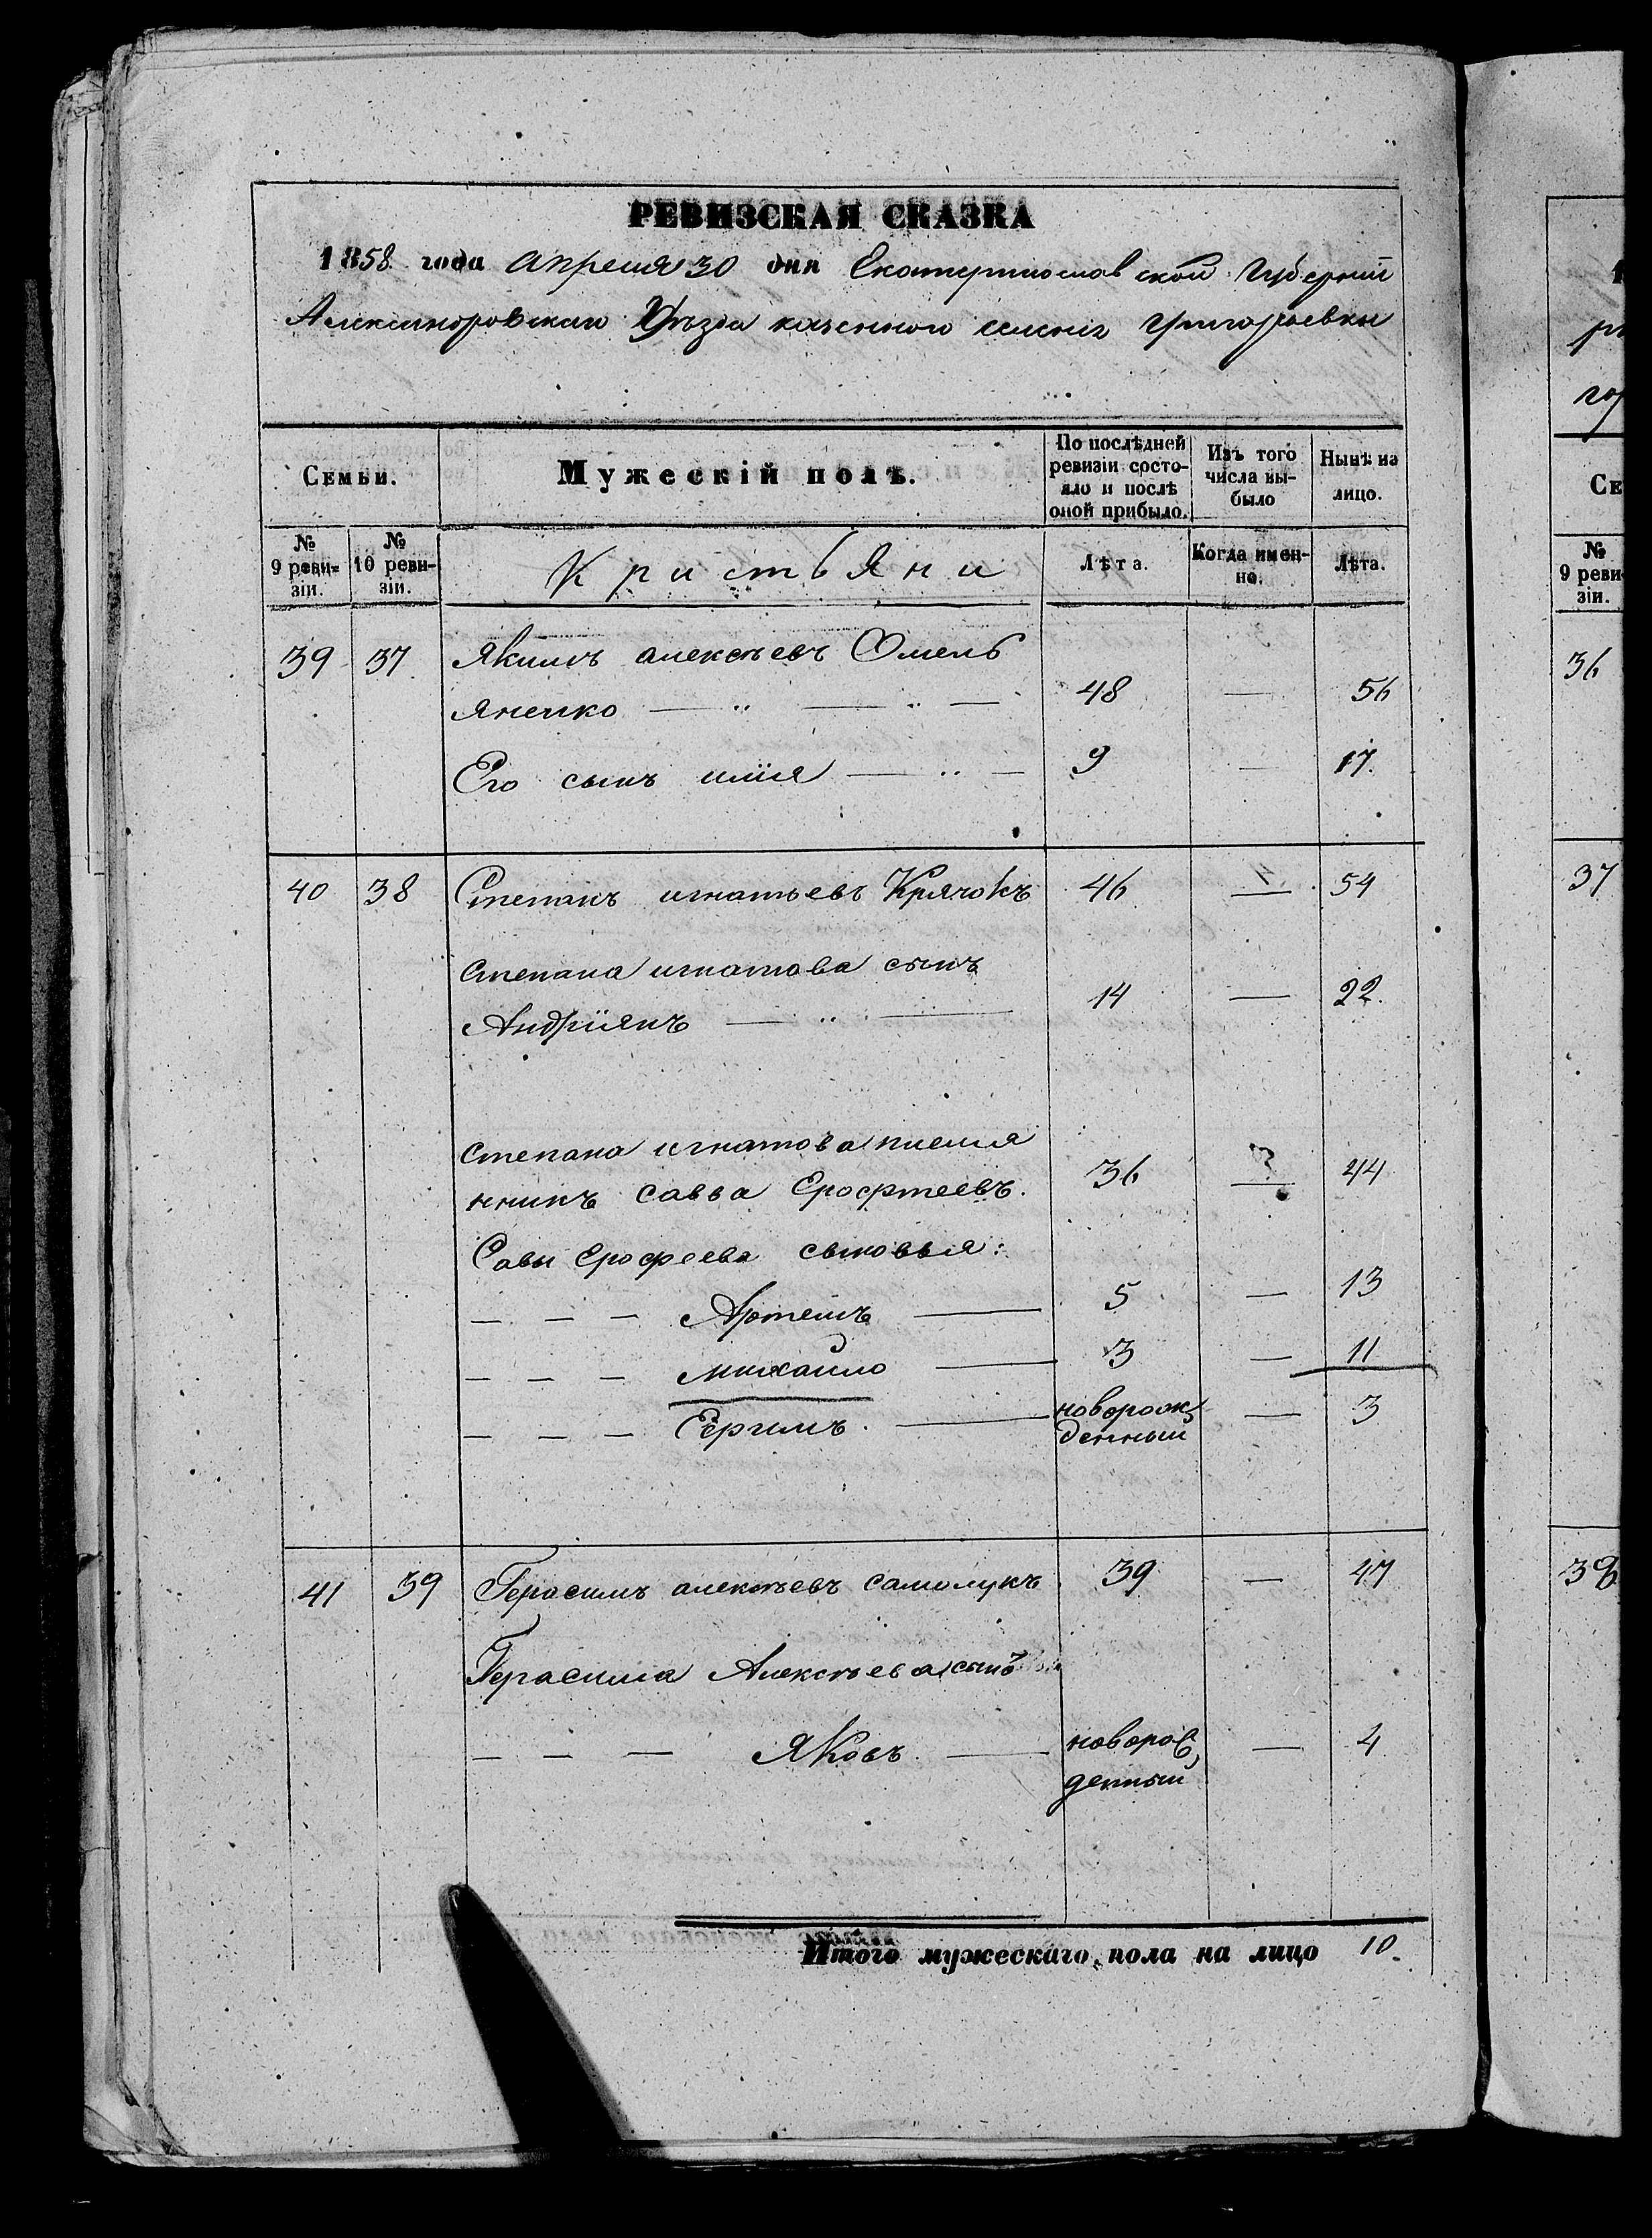 РЕВИЗСКАЯ СКАЗКА
1858 года Апреля 30 дня Екатеринославской Губернии
Александровскаго Уѣзда казенного селения Григорьевки
Семьи.
Мужескій полъ.
По послѣдней ревизіи состояло и послѣ оной прибыло.
Изъ того числа выбыло
Нынѣ на лицо.
№ 9 ревизіи.
№ 10 ревизіи.
Кристьяни
Лѣта.
Когда именно.
Лѣта.
39 37 Якимъ алексѣевъ Омель
яненко — „ — „ — 48 — 56
Его сынъ илія — „ — 9 — 17.
40 38 Степанъ игнатьевъ Крячокъ 46 — 54
Степана игнатова сынъ
Андріянъ — „ — 14 — 22.
Степана игнатова племя
нникъ савва Ерофтеевъ. 36 — 44
Савы Ерофеева сыновья:
— — — Артемъ — 5 — 13
— — — михайло — 3 — 11
— — — Ефимъ. — новорож
денный — 3
41 39 Герасимъ алексѣевъ самолукъ 39 — 47
Герасима Алексѣева сынъ
— — — Яковъ. — новорож
денный — 4
Итого мужескаго пола на лицо 10.
Се
№ 9 реви
зіи.
36
37
38